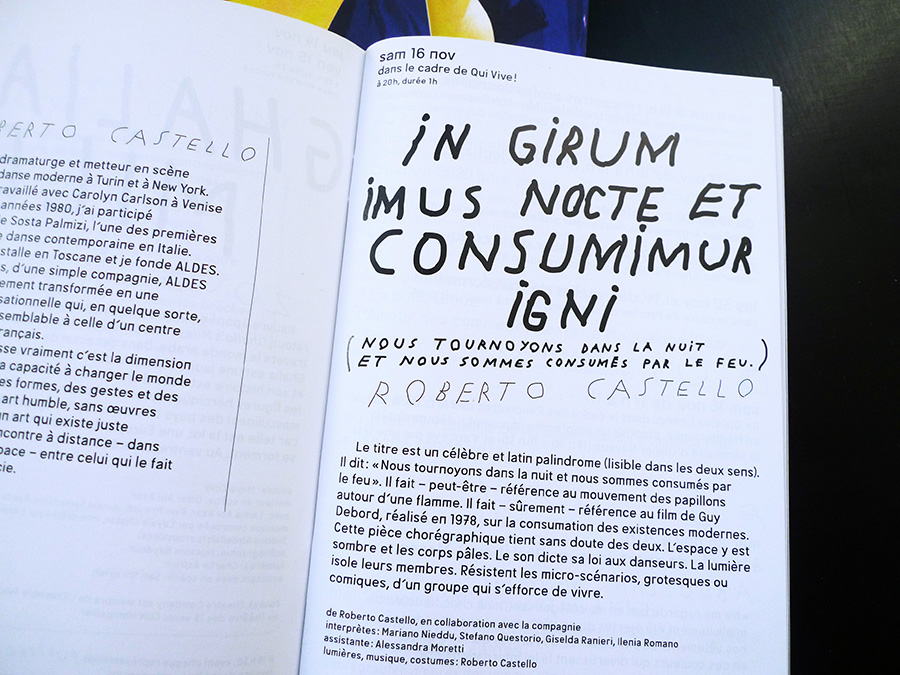 ERTO CASTELLO
dramaturge et metteur en scène
danse moderne à Turin et à New York.
ravaillé avec Carolyn Carlson à Venise
années 1980, j’ai participé
e Sosta Palmizi, l’une des premières
e danse contemporaine en Italie.
stalle en Toscane et je fonde ALDES.
s, d’une simple compagnie, ALDES
ement transformée en une
sationnelle qui, en quelque sorte,
semblable à celle d’un centre
rançais.
sse vraiment c’est la dimension
a capacité à changer le monde
es formes, des gestes et des
art humble, sans œuvres
un art qui existe juste
ncontre à distance – dans
pace – entre celui qui le fait
cie.
sam 16 nov
dans le cadre de Qui Vive!
à 20h, durée 1h
iN GiRUM
iMUS NOCTE ET
CONSUMiMUR
iGNi
(NOUS TOURNOYONS DANS LA NUiT
ET NOUS SOMMES CONSUMÉS PAR LE FEU.)
ROBERTO CASTELLO
Le titre est un célèbre et latin palindrome (lisible dans les deux sens).
Il dit: « Nous tournoyons dans la nuit et nous sommes consumés par
le feu ». Il fait – peut-être – référence au mouvement des papillons
autour d’une flamme. Il fait – sûrement – référence au film de Guy
Debord, réalisé en 1978, sur la consumation des existences modernes.
Cette pièce chorégraphique tient sans doute des deux. L’espace y est
sombre et les corps pâles. Le son dicte sa loi aux danseurs. La lumière
isole leurs membres. Résistent les micro-scénarios, grotesques ou
comiques, d’un groupe qui s’efforce de vivre.
de Roberto Castello, en collaboration avec la compagnie
interprètes: Mariano Nieddu, Stefano Questorio, Giselda Ranieri, Ilenia Romano
assistante: Alessandra Moretti
lumières, musique, costumes: Roberto Castello